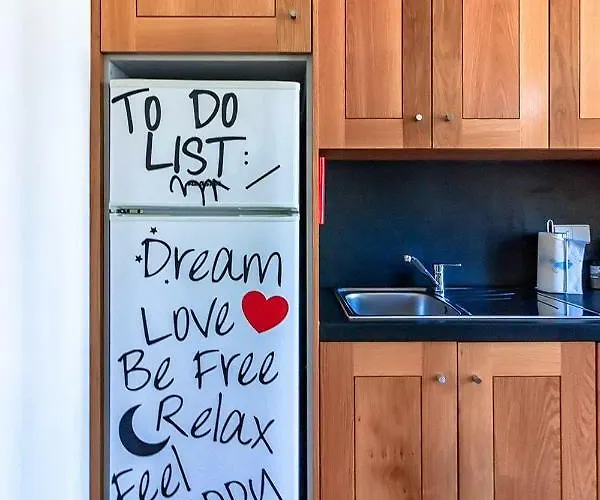 TO DO
LIST:
Dream
Love
Be Free
Relax
Feel